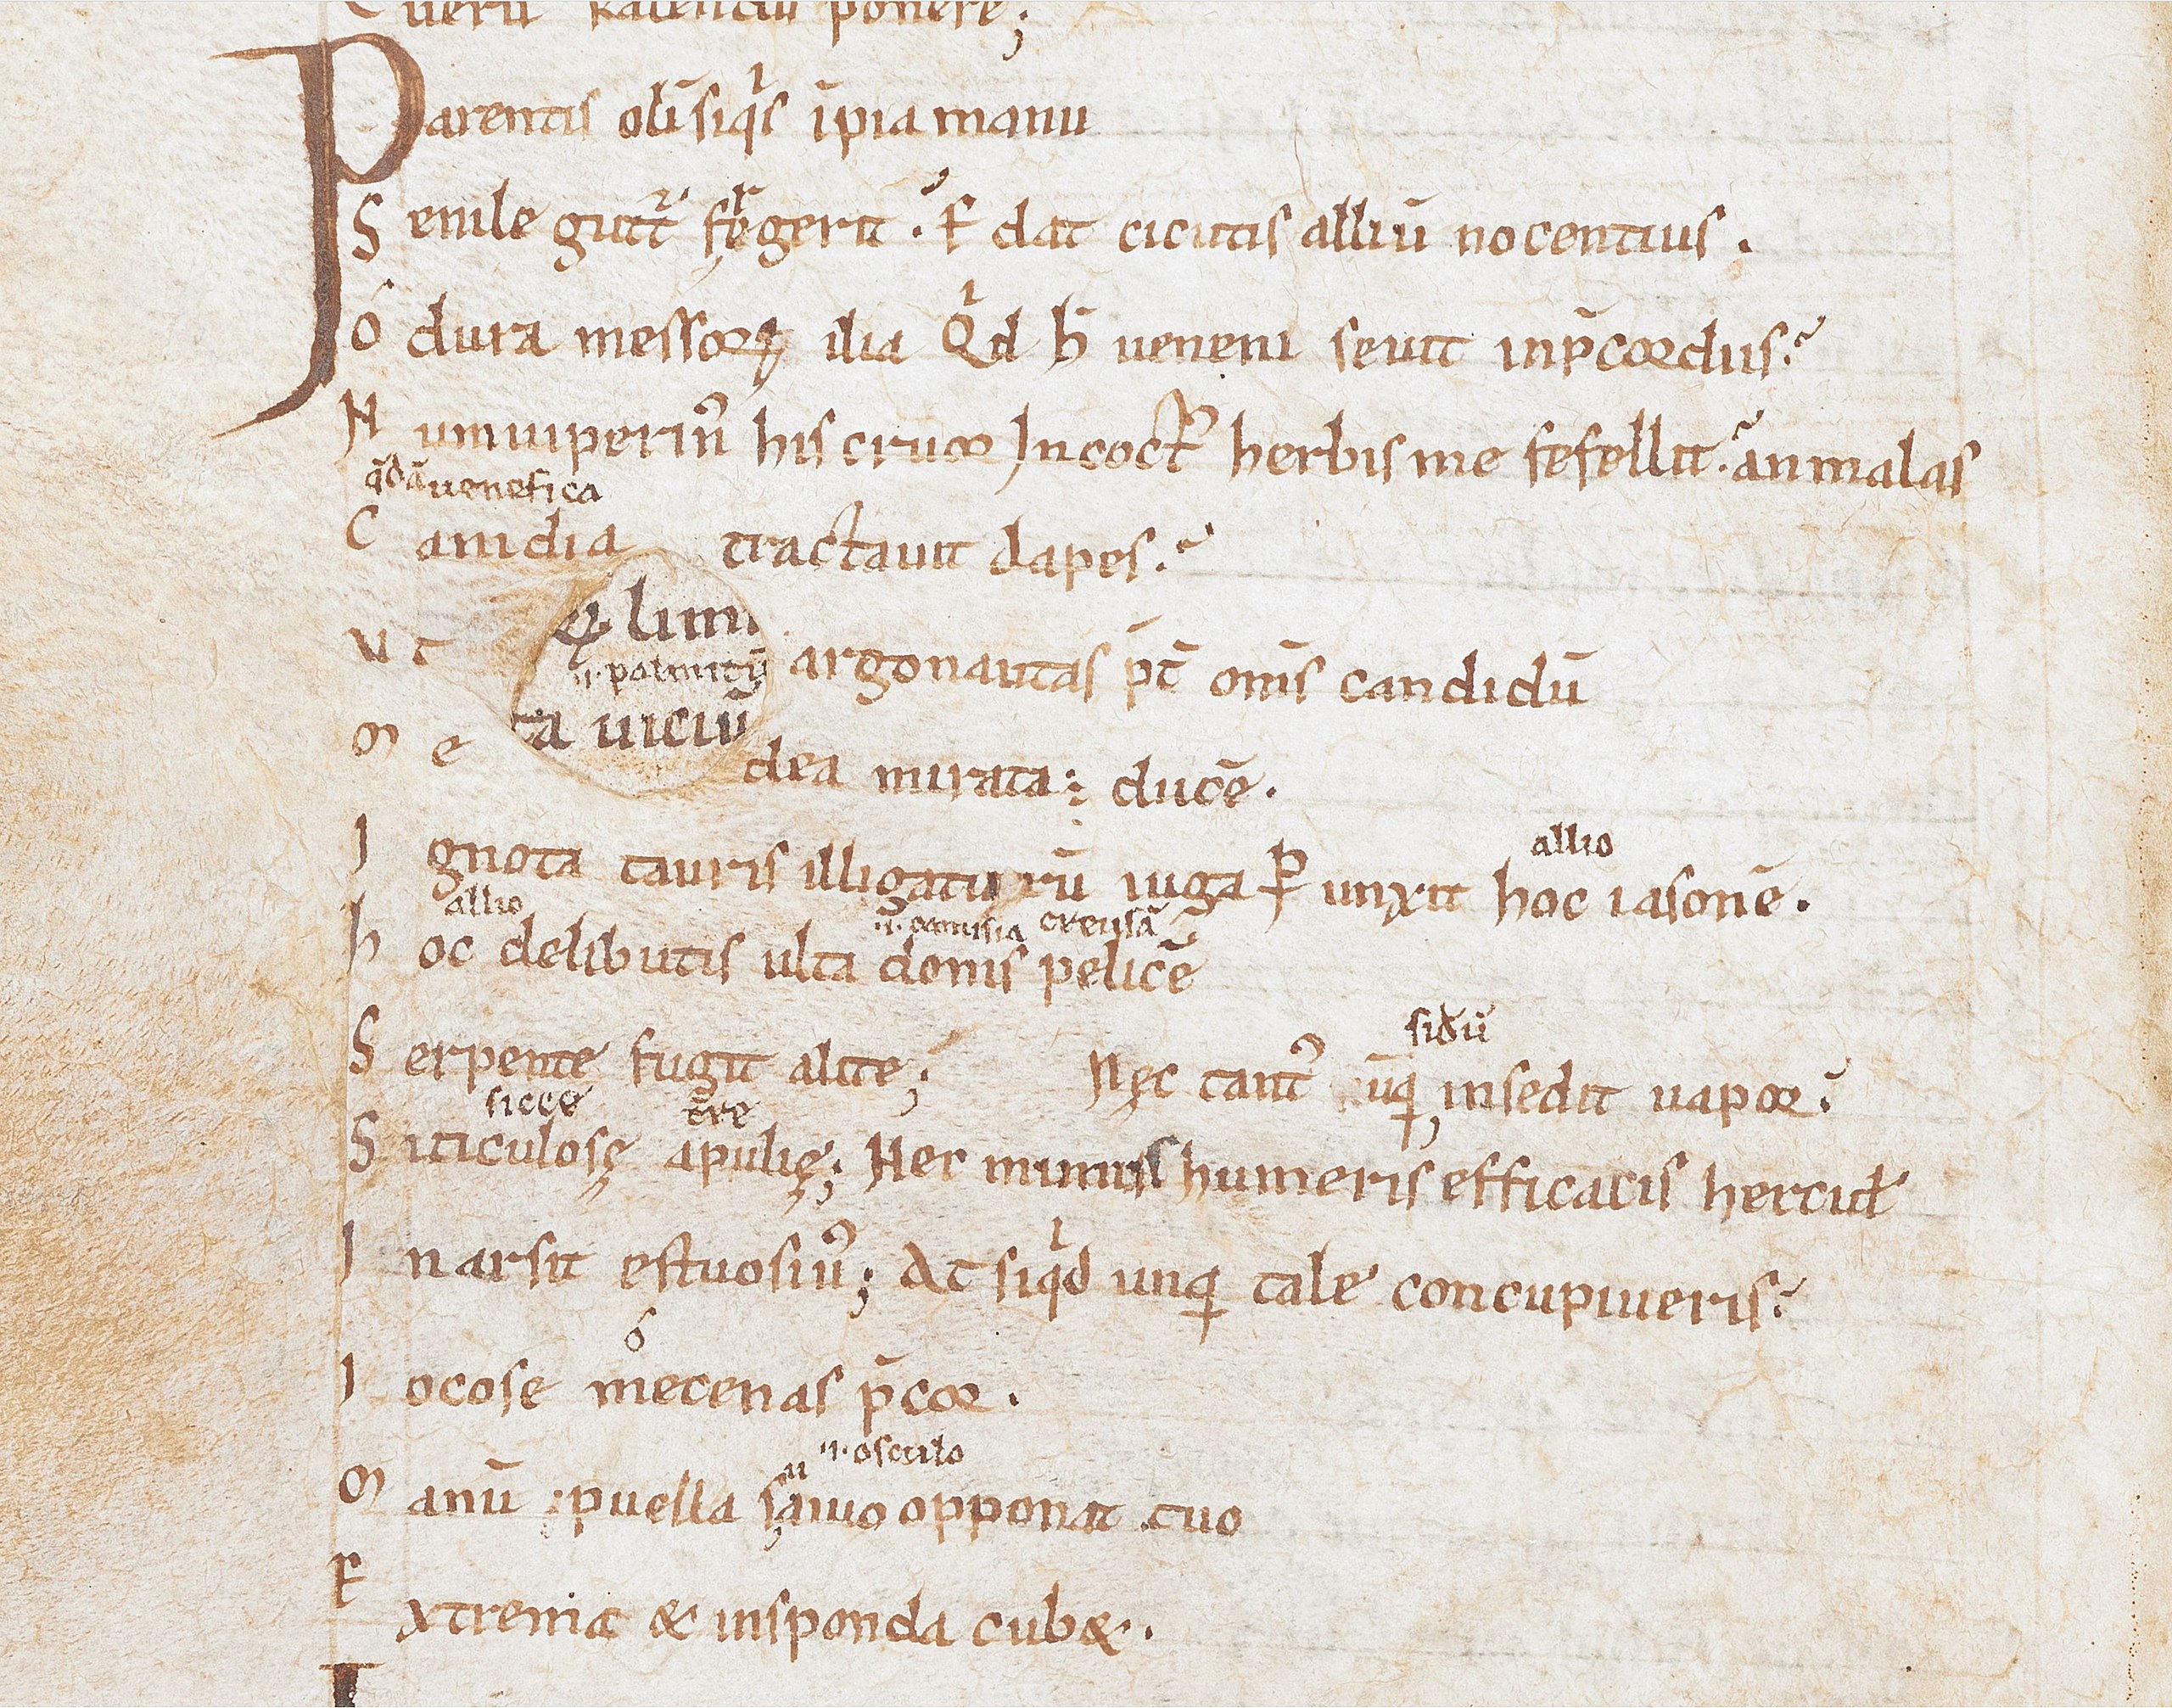 uerit kalendis ponere;
Parentis olī siqͥs īpia manu
Senile gutt᷑ fͬegerit. Edat cicutis alliū nocentius.
O dura messoꝝ ilia Qͥd h̄ ueneni seuit inp̄cordiis.
Num uiperinꝰ his cruor Incoctꝰ herbis me fefellit. an malas
q̄dā uenefica
Canidia tractauit dapes.
& limi
Vt argonautas p̄t om̄s candidū
.i. palmitū
ta uiciū
Medea mirata: ducē.
allio
Ignota tauris illigaturū iuga ꝑunxit hoc iasonē.
allio .i. camisia creusā
hoc delibutis ulta donis pelicē
siđū
Serpente fugit alite; Nęc tantꝰ ūq insedit uapor.
sicce t̄re
Siticulosę apulię; Nec munus humeris efficacis hercuł
Inarsit estuosiꝰ; At siqͥd unq tale concupiueris.
ó
Iocose mecenas p̄cor.
u .i. osculo
Manū puella sauio opponat tuo
Extrema & insponda cub&.